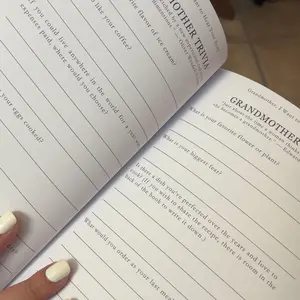 to Hear Your
MOTHER TRIVIA
like your coffee?
flavor of ice cream?
If you could live anywhere in the world for a
expenses paid, where would you choose?
your eggs cooked?
Grandmother, I Want to
GRANDMOTHER
What is your favorite flower or plant?
What is your biggest fear?
Is there a dish you've perfected over the years and love to
cook? (If you wish to share the recipe, there is room in the
back of the book to write it down.)
What would you order as your last meal